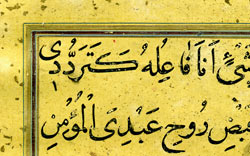 شَیْءٍ اَنَا فَاعِلُهُ كَتَرَدُّدِی
قَبْضِ رُوحِ عَبْدِیَ الْمُؤْمِنِ